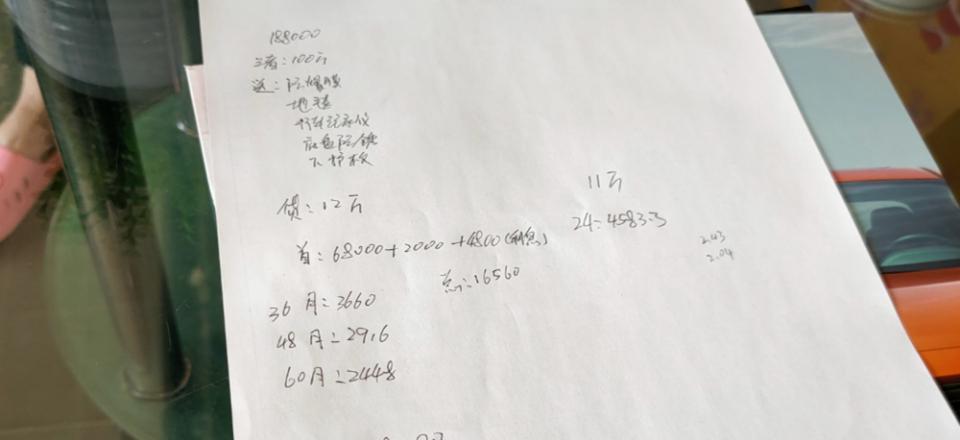 188000
三者：100万
送：防爆膜
地毯
行车记录仪
底盘防锈
下护板
贷：12万
首：68000+2000+4800(利息)
总：16560
36月：3660
48月：2916
60月：2448
11万
24：4583.3
2.43
2.04